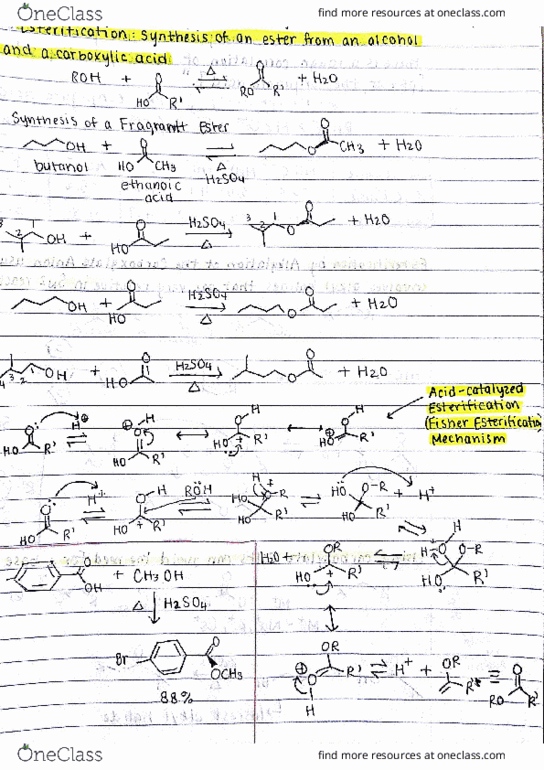 OneClass
find more resources at oneclass.com
Esterification: Synthesis of an ester from an alcohol
and a carboxylic acid
ROH + HO R' Δ RO R' + H2O
Synthesis of a Fragrant Ester
OH + HO O CH3 ⇌ O CH3 + H2O
butanol Δ
ethanoic H2SO4
acid
3 2 1 OH + HO O H2SO4 Δ 3 2 1 O O + H2O
OH + HO O H2SO4 Δ O O + H2O
4 3 2 OH + HO O H2SO4 Δ O O + H2O
Acid-catalyzed
Esterification
(Fisher Esterification
Mechanism
HO R' H⊕ HO R' HO R' HO R'
HO R' H+ HO R' ROH R' HO R' + H+
OH + CH3OH
Δ H2SO4
Br O OCH3
88%
H2O + OR HO R' HO R'
OR R' ⇌ H+ + OR R' ≡ O RO R'
H
OneClass
find more resources at oneclass.com